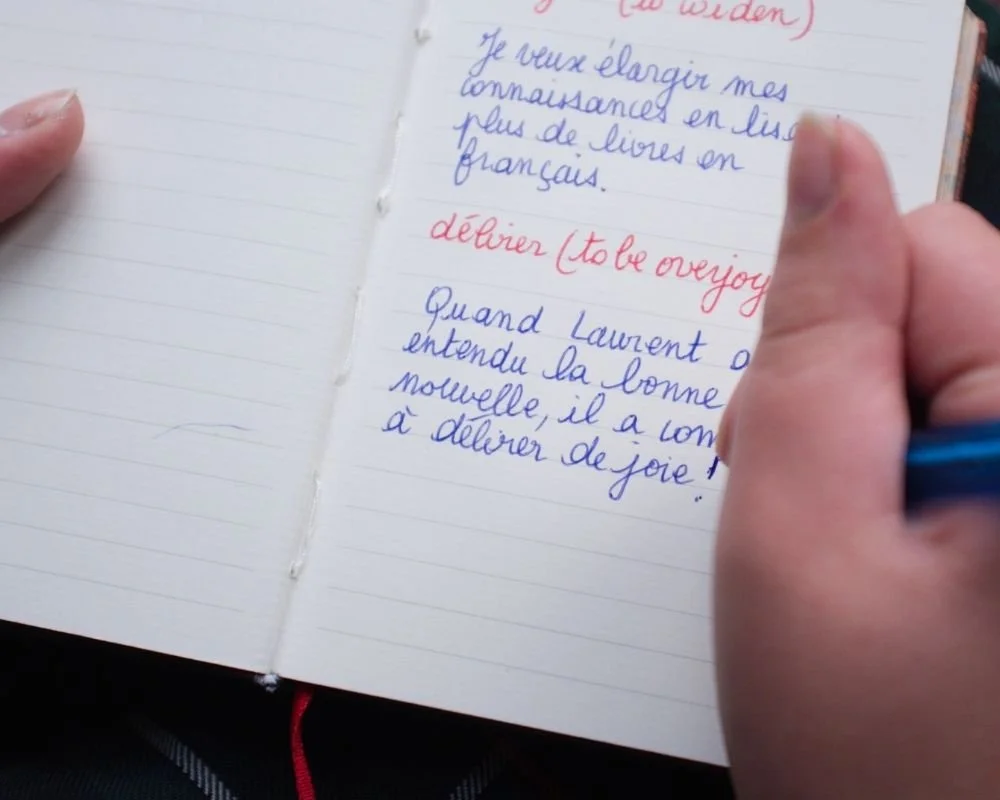 (to widen)
Je veux élargir mes
connaissances en
plus de livres en
français.
délirer (to be
Quand Laurent a
entendu la bonne
nouvelle, il a
à délirer de joie !